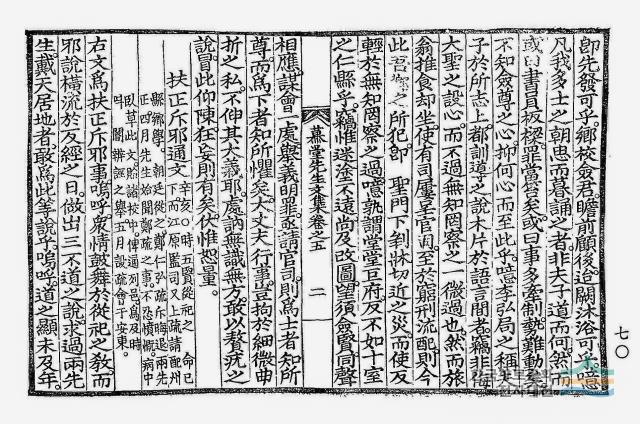 卽先發可乎鄕校僉君瞻前顧後迨闕沐浴可乎噫
凡我多士之朝思而暮誦之者非夫子道而何然而
或曰書員板樑罪當公矣或曰事多牽制勢難動
不知僉尊之心抑何心而至此乎噫李弘局之稱
子於所志上都訓導之說木片於語言間者竊非侮
大聖之設心而不過無知罔察之一微過也然而旅
翁推食却坐使有司屢呈官囚至於窮刑流配則今
此吾鄕之所犯卽 聖門下剝牀切近之災而使反
輕於無知罔察之過噫孰謂堂堂豆府反不如十室
之仁縣乎竊惟迷途不遠尚及改圖望須僉賢同聲
慕堂先生文集卷之五 二
相應謀會一處擧義明罪亟請官司則爲士者知所
尊而爲下者知所懼矣大丈夫行事豈拘於細微曲
折之私不伸其大義耶處訥無識無方敢以瞽茺之
說冒此仰陳狂妄則有矣伏惟恕量
扶正斥邪通文
辛亥○時五賢從祀之命
下而江原監司又上疏請配州
縣鄕學 朝廷從之鄭仁弘疏斥晦退兩先
正四月先生始聞鄭疏之事不忍憤慨病中
臥草此文貽諸校中俾遍列邑爲及時
叫闔辨誣之擧五月設疏會于安東
右文爲扶正斥邪事嗚呼衆情鼓舞於從祀之敎而
邪說橫流於反經之日做出三不道之說求過兩先
生戴天居地者敢爲此等說乎嗚呼道之顯未及年
七〇